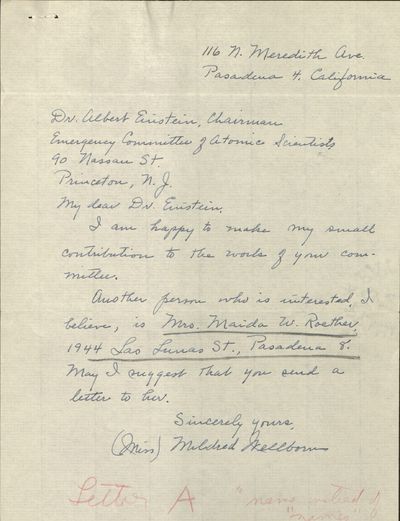 116 N. Meredith Ave.
Pasadena 4, California
Dr. Albert Einstein, Chairman
Emergency Committee of Atomic Scientists
90 Nassau St.
Princeton, N. J.
My dear Dr. Einstein,
I am happy to make my small
contribution to the work of your com-
mittee.
Another person who is interested, I
believe, is Mrs. Maida W. Roether,
1944 Las Lunas St., Pasadena 8.
May I suggest that you send a
letter to her.
Sincerely yours,
(Miss) Mildred Wellborn
Letter A "name instead of
"names"